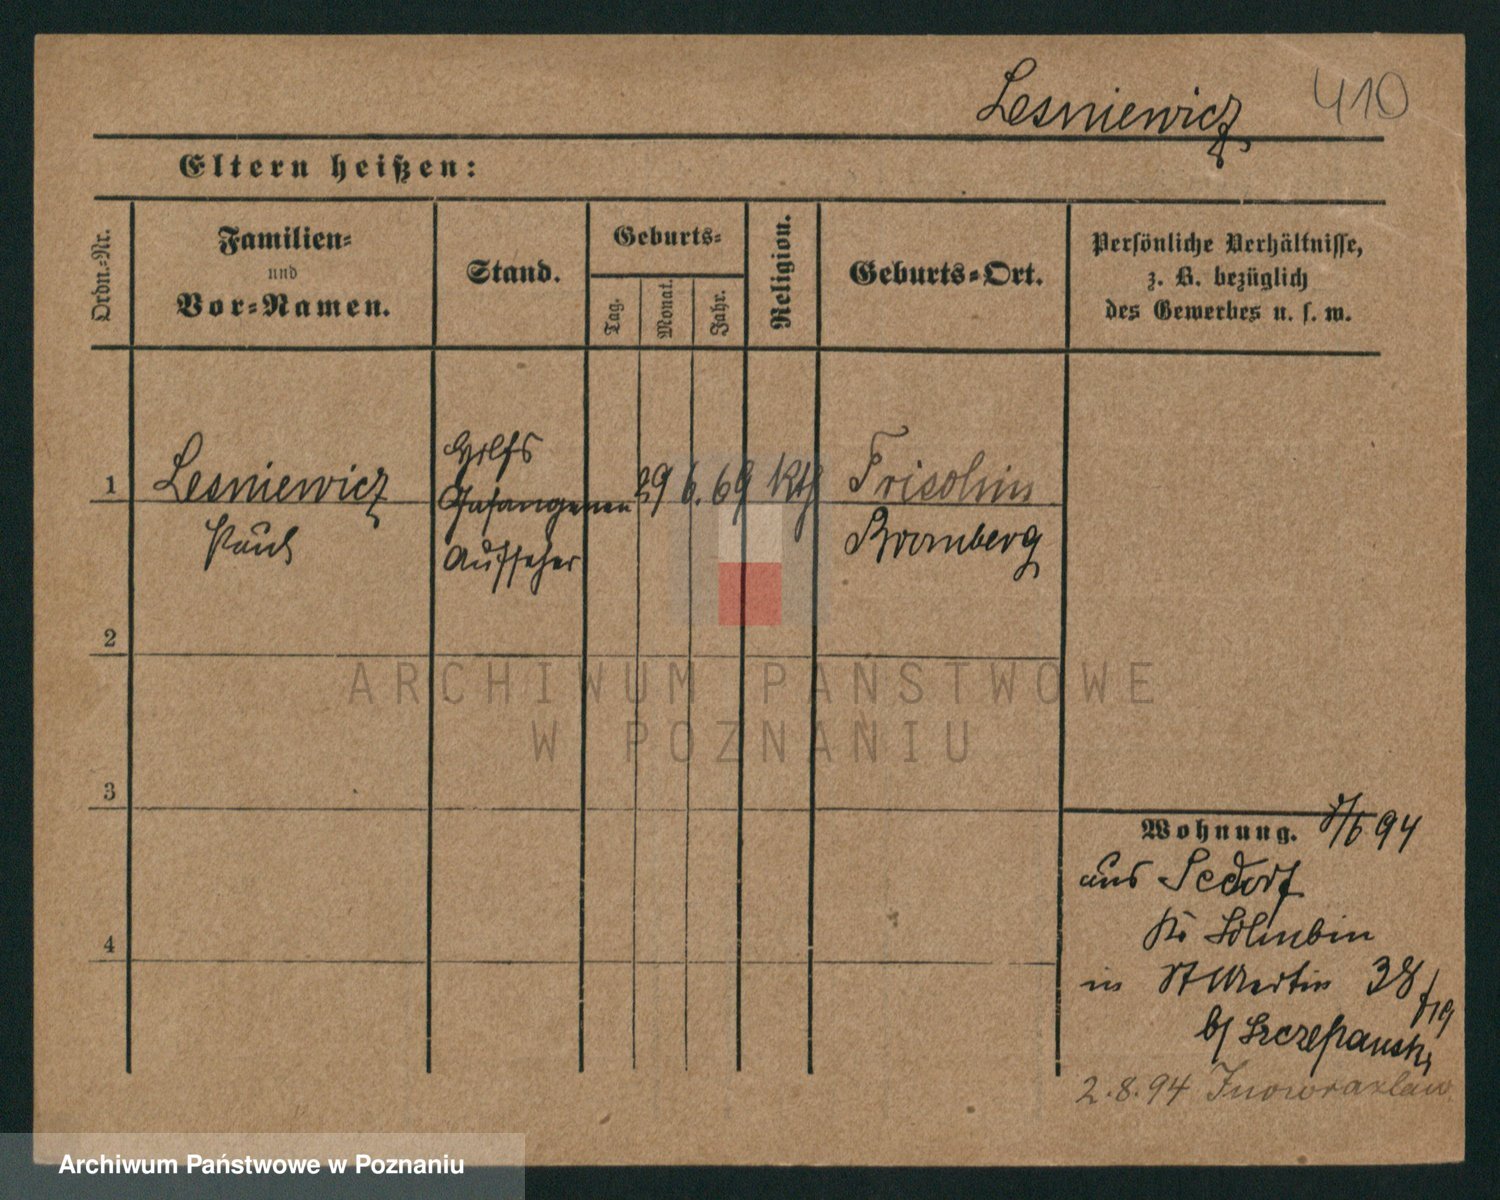 Lesniewicz 410
Eltern heißen:
Ordn.-Nr.
Familien-
und
Vor-Namen.
Stand.
Geburts-
Tag.
Monat.
Jahr.
Religion.
Geburts-Ort.
Persönliche Verhältnisse,
z. B. bezüglich
des Gewerbes u. s. w.
1
Lesniewicz
Paul
Hilfs
Gefangenen
Aufseher
29 6. 69 kth
Bromberg
2
3
4
Wohnung. 94
aus Sedorf
in St Martin 38
b/ Szczepanski
2.8.94 Inowrazlaw
ARCHIWUM PAŃSTWOWE
W POZNANIU
Archiwum Państwowe w Poznaniu